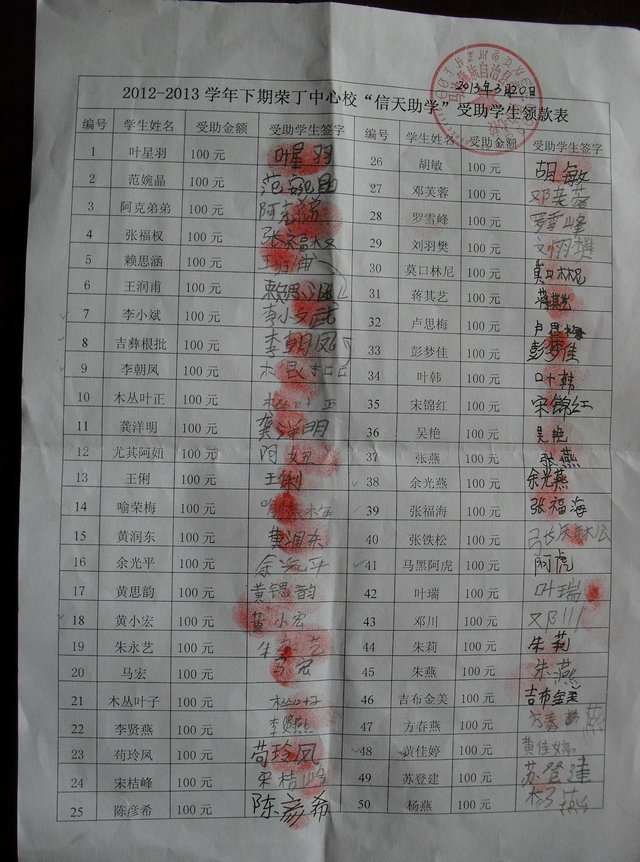 2013年3月20日
2012-2013 学年下期荣丁中心校“信天助学”受助学生领款表
编号 学生姓名 受助金额 受助学生签字 编号 学生姓名 受助金额 受助学生签字
1 叶星羽 100 元 叶星羽 26 胡敏 100 元 胡敏
2 范婉晶 100 元 范婉晶 27 邓芙蓉 100 元 邓芙蓉
3 阿克弟弟 100 元 28 罗雪峰 100 元 罗雪峰
4 张福权 100 元 张福权 29 刘羽樊 100 元 刘羽樊
5 赖思涵 100 元 王润甫 30 莫口林尼 100 元 莫口林尼
6 王润甫 100 元 赖思涵 31 蒋其艺 100 元 蒋其艺
7 李小斌 100 元 李小斌 32 卢思梅 100 元 卢思梅
8 吉彝根批 100 元 李朝凤 33 彭梦佳 100 元 彭梦佳
9 李朝凤 100 元 34 叶韩 100 元 叶韩
10 木丛叶正 100 元 35 宋锦红 100 元 宋锦红
11 龚洋明 100 元 龚洋明 36 吴艳 100 元 吴艳
12 尤其阿妞 100 元 阿妞 37 张燕 100 元 张燕
13 王俐 100 元 王俐 38 余光燕 100 元 余光燕
14 喻荣梅 100 元 喻荣梅 39 张福海 100 元 张福海
15 黄润东 100 元 黄润东 40 张铁松 100 元
16 余光平 100 元 余光平 41 马黑阿虎 100 元 阿虎
17 黄思韵 100 元 黄锶韵 42 叶瑞 100 元 叶瑞
18 黄小宏 100 元 黄小宏 43 邓川 100 元 邓川
19 朱永艺 100 元 朱永艺 44 朱莉 100 元 朱莉
20 马宏 100 元 马宏 45 朱燕 100 元 朱燕
21 木丛叶子 100 元 46 吉布金美 100 元 吉布金美
22 李贤燕 100 元 李贤燕 47 方春燕 100 元 方春燕
23 苟玲凤 100 元 苟玲凤 48 黄佳婷 100 元 黄佳婷
24 宋桔峰 100 元 宋桔峰 49 苏登建 100 元 苏登建
25 陈彦希 100 元 陈彦希 50 杨燕 100 元 杨燕